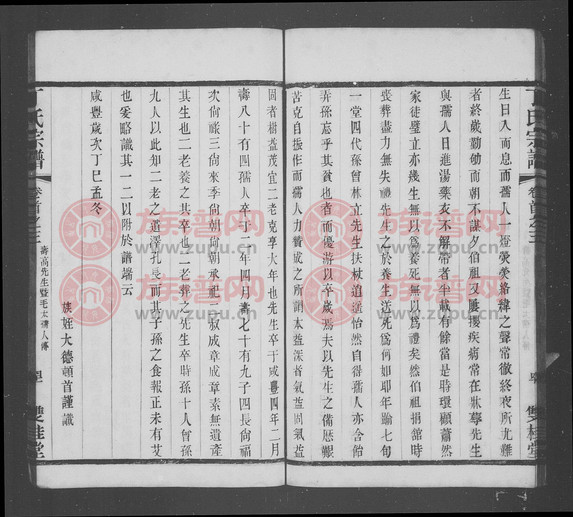 生日入而息而孺人一燈熒熒絡緯之聲常徹終夜所尤難
者終歲勤劬而朝不謀夕伯祖又屢攖疾病常在牀蓐先生
與孺人日進湯藥衣不解帶者半載有餘當是時環顧蕭然
家徒壁立亦幾生無以爲養死無以爲禮矣然伯祖捐館時
喪葬盡力無失禮先生於養生送死爲何如耶年踰七旬
一堂四代孫曾林立先生扶杖逍遙怡然自得孺人亦含飴
弄孫忘乎其貧也者而優游以卒歲焉夫以先生之備歷艱
苦克自振作而孺人力贊成之所謂本益深者氣益固氣益
固者樹益茂宜二老克享大年也先生卒于咸豐四年二月
壽八十有四孺人卒于 年四月壽七十有九子四長尙福
次尙嚴三尙來季尙朝承祀三叔成章成章素無遺產
其生也二老養之其卒也二老葬之先生卒時孫十人曾孫
九人以此知二老之遺澤孔長而其子孫之食報正未有艾
也爰略識其一二以附於譜端云
咸豐歲次丁巳孟冬
族姪大德頓首謹識
丁氏宗譜
卷首之三
壽高先生暨毛太孺人傳
雙桂堂
丁氏宗譜
卷首之三
雙桂堂
族譜网
www.zupu.cn
族譜网
www.zupu.cn
族譜网
www.zupu.cn